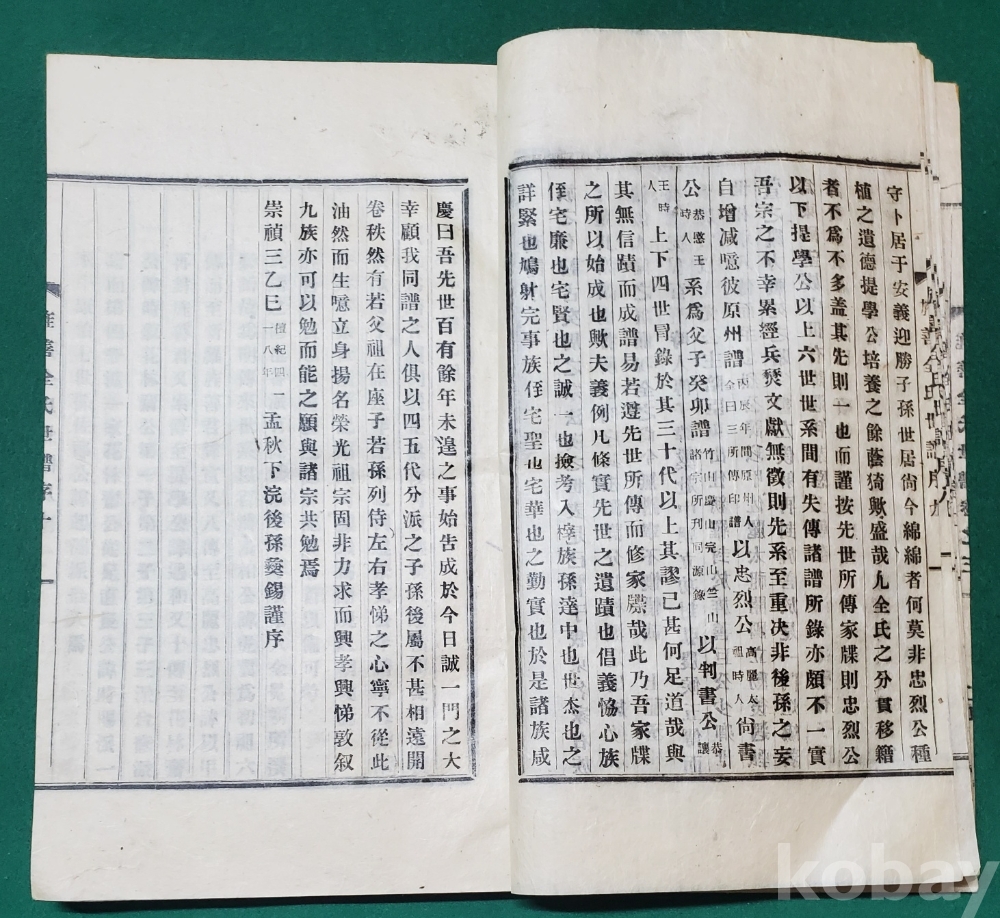 守卜居于安義迎勝子孫世居尙今綿綿者何莫非忠烈公種
植之遺德提學公培養之餘蔭猗歟盛哉凡全氏之分貫移籍
者不爲不多盖其先則一也而謹按先世所傳家牒則忠烈公
以下提學公以上六世世系間有失傳諸譜所錄亦頗不一實
吾宗之不幸累經兵燹文獻無徵則先系至重决非後孫之妄
自增减噫彼原州譜 丙辰年間原州人全曰三所傳印譜 以忠烈公 高麗太祖時人 尙書
公 恭愍王時人 系爲父子癸卯譜 竹山慶山完山竺山諸宗所刊同源錄 以判書公 恭讓
王時人 上下四世冒錄於其三十代以上其謬已甚何足道哉與
其無信蹟而成譜易若遵先世所傳而修家牒哉此乃吾家牒
之所以始成也歟夫義例凡條實先世之遺蹟也倡義恊心族
侄宅廉也宅賢也之誠一也撿考入梓族孫達中也世杰也之
詳緊也鳩財完事族侄宅聖也宅華也之勤實也於是諸族咸
慶曰吾先世百有餘年未遑之事始告成於今日誠一門之大
幸顧我同譜之人俱以四五代分派之子孫後屬不甚相遠開
卷秩然有若父祖在座子若孫列侍左右孝悌之心寧不從此
油然而生噫立身揚名榮光祖宗固非力求而興孝興悌敦叙
九族亦可以勉而能之願與諸宗共勉焉
崇禎三乙巳 檀紀四一一八年 孟秋下浣後孫彛錫謹序
旌善全氏世譜序 十
旌善全氏世譜序 九
kobay